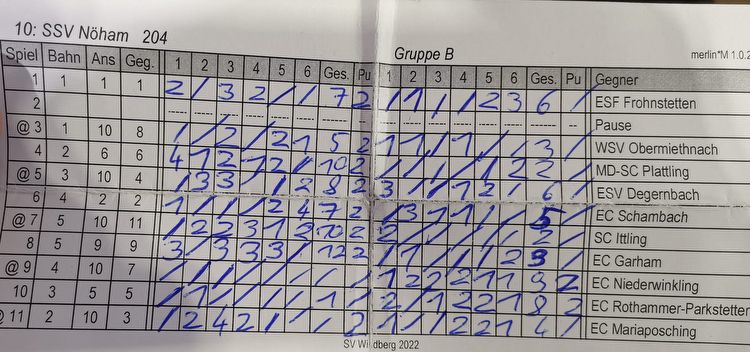 10: SSV Nöham 204
Gruppe B
merlin*M 1.0.2
Spiel Bahn Ans Geg. 1 2 3 4 5 6 Ges. Pu 1 2 3 4 5 6 Ges. Pu Gegner
1 1 1 1 2 / 3 2 / / 7 2 / 1 / / 2 3 6 / ESF Frohnstetten
2 ---- ---- ---- ---- ---- ---- ---- ---- ---- ---- ---- ---- ---- ---- ---- ---- Pause
@ 3 1 10 8 / / 2 / 2 1 5 2 1 1 / 1 / / 3 / WSV Obermiethnach
4 2 6 6 4 1 2 1 2 / 10 2 / / / / / 2 2 / MD-SC Plattling
@ 5 3 10 4 / 3 3 / / 2 8 2 3 / / 1 2 / 6 / ESV Degernbach
6 4 2 2 1 / / / 2 4 7 2 / 3 1 1 / / 5 / EC Schambach
@ 7 5 10 11 / 2 2 3 1 2 10 2 2 / / / / / 2 / SC Ittling
8 5 9 9 3 / 3 3 3 / 12 2 / 1 / / / 2 3 / EC Garham
@ 9 4 10 7 / / / / / / / / 1 2 2 2 1 1 9 2 EC Niederwinkling
10 3 5 5 / 1 / / / / 1 / 2 / 1 2 2 1 8 2 EC Rothammer-Parkstetten
@ 11 2 10 3 / 2 4 2 / / 2 2 2 1 4 / EC Mariaposching
SV Windberg 2022